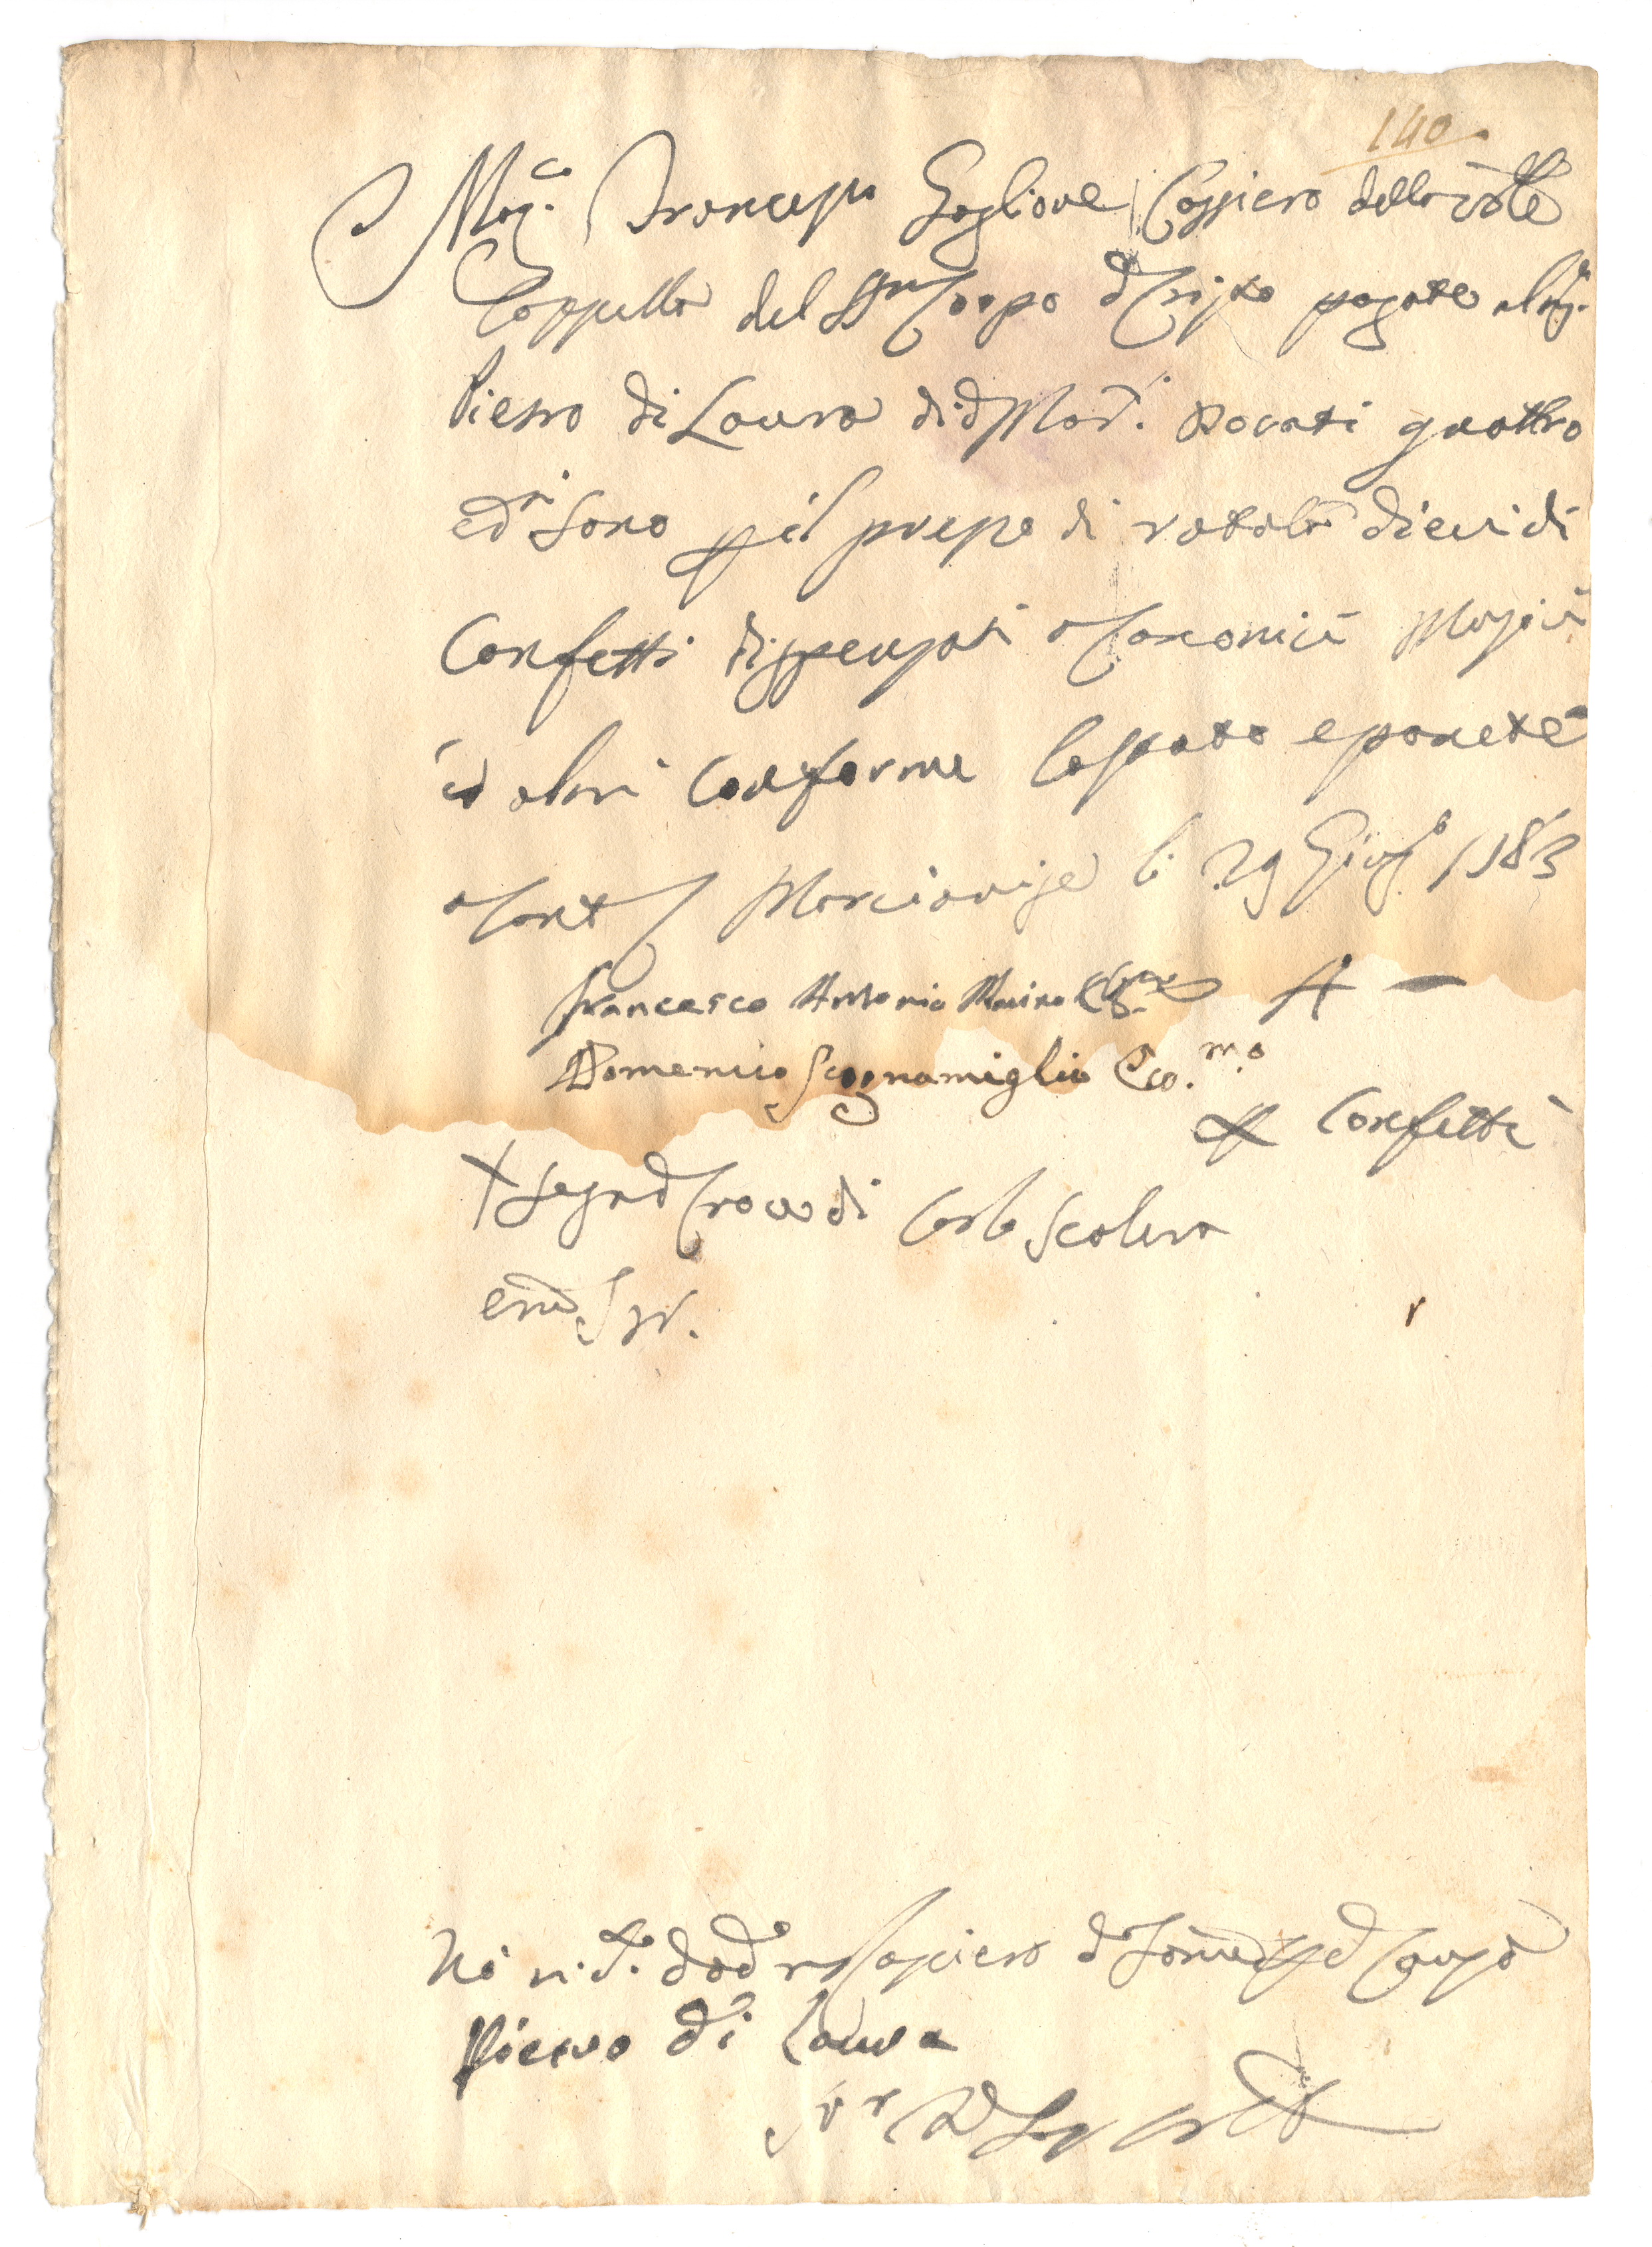 140
Mag.co Francesco Foglione Cassiero della ven.le
Cappella del SS.mo Corpo d Cristo pagate al Mag.
Pietro di Laura di d Mar.i Docati quattro
ed.ni sono p il prezzo di rotola dieci di
Confetti dispenzati a Canonici Musici
ed altri Conforme lo stato e ponete
a cont Marcianise li 29 Giug.o 1783
Francesco Antonio Marino 4 -
Domenico Scognamiglio Eco.mo
p Confetti
+ Segno d Croce di Carlo Scolera
Ecmo
Cassiero d d Somma p d Causa
Pietro di Laura